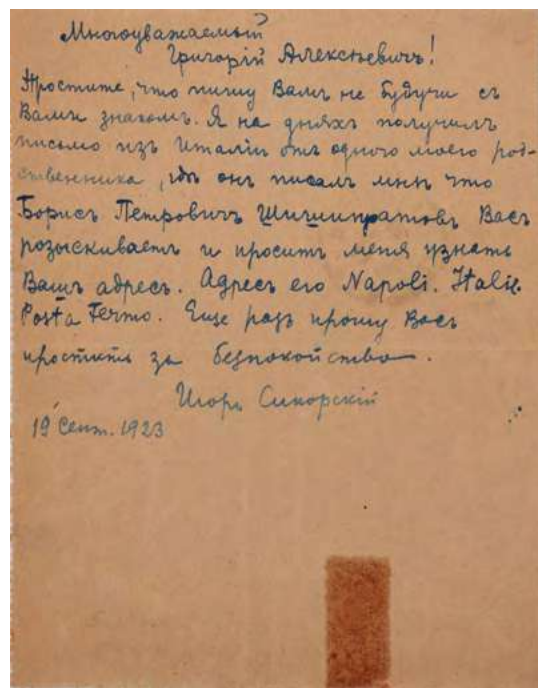 Многоуважаемый
Григорій Алексѣевичъ!
Простите, что пишу Вамъ не будучи съ
Вами знакомъ. Я на дняхъ получилъ
письмо изъ Италіи отъ одного моего род-
ственника, гдѣ онъ писалъ мнѣ что
Борисъ Петровичъ Васъ
розыскиваетъ и проситъ меня узнать
Вашъ адресъ. Адресъ его Napoli. Italie.
Posta Fermo. Еще разъ прошу Васъ
простить за безпокойство.
Игорь Сикорскій
19 Сент. 1923